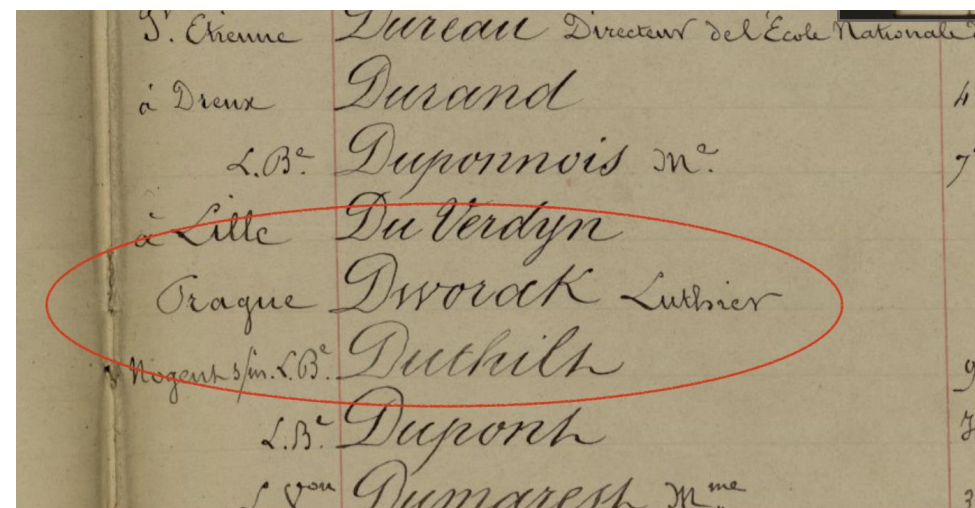 St. Etienne Dureau Directeur de l'École Nationale
à Dreux Durand 4
L.Be. Duponnois Me. 7
à Lille Du Verdyn
Prague Dworak Luthier
Nogent s/m. L.Be. Duthilt 9
L.Be. Dupont 7
Dumarest Mme 3